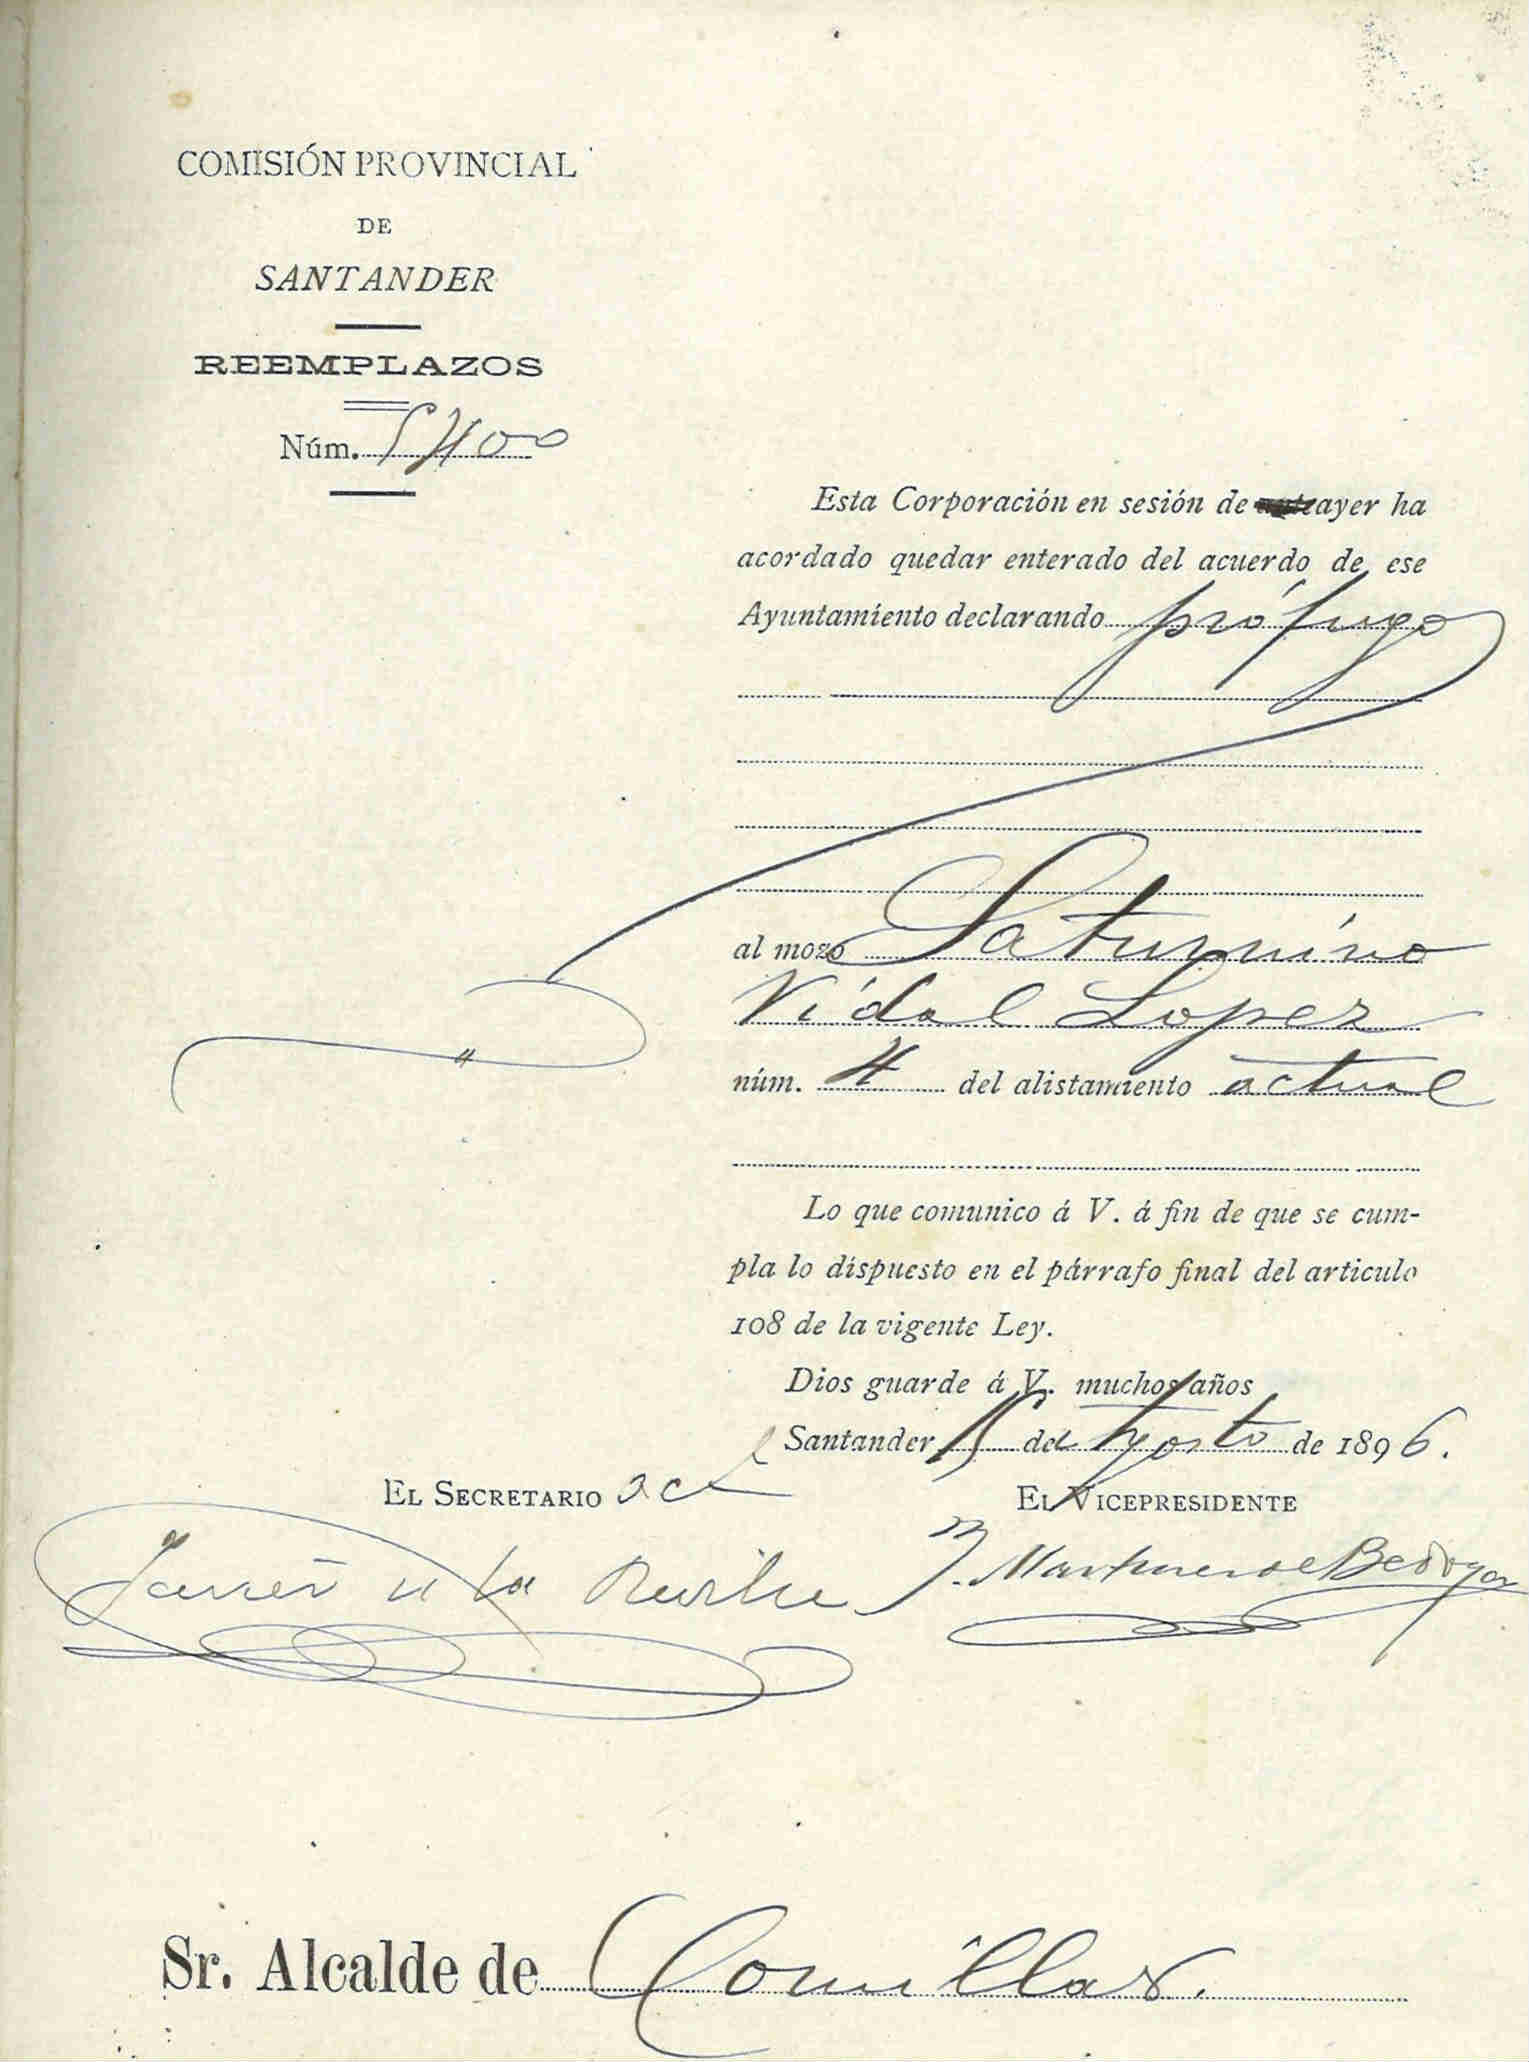 COMISIÓN PROVINCIAL
DE
SANTANDER
REEMPLAZOS
Núm. 5400
Esta Corporación en sesión de ayer ha
acordado quedar enterado del acuerdo de ese
Ayuntamiento declarando prófugo
al mozo Saturnino
Vidal Lopez
núm. 4 del alistamiento actual
Lo que comunico á V. á fin de que se cum-
pla lo dispuesto en el párrafo final del articulo
108 de la vigente Ley.
Dios guarde á V. muchos años
Santander 15 de Agosto de 1896.
EL SECRETARIO acl
EL VICEPRESIDENTE
Javier de la Revilla
Martinez de Bedoya
Sr. Alcalde de Comillas.